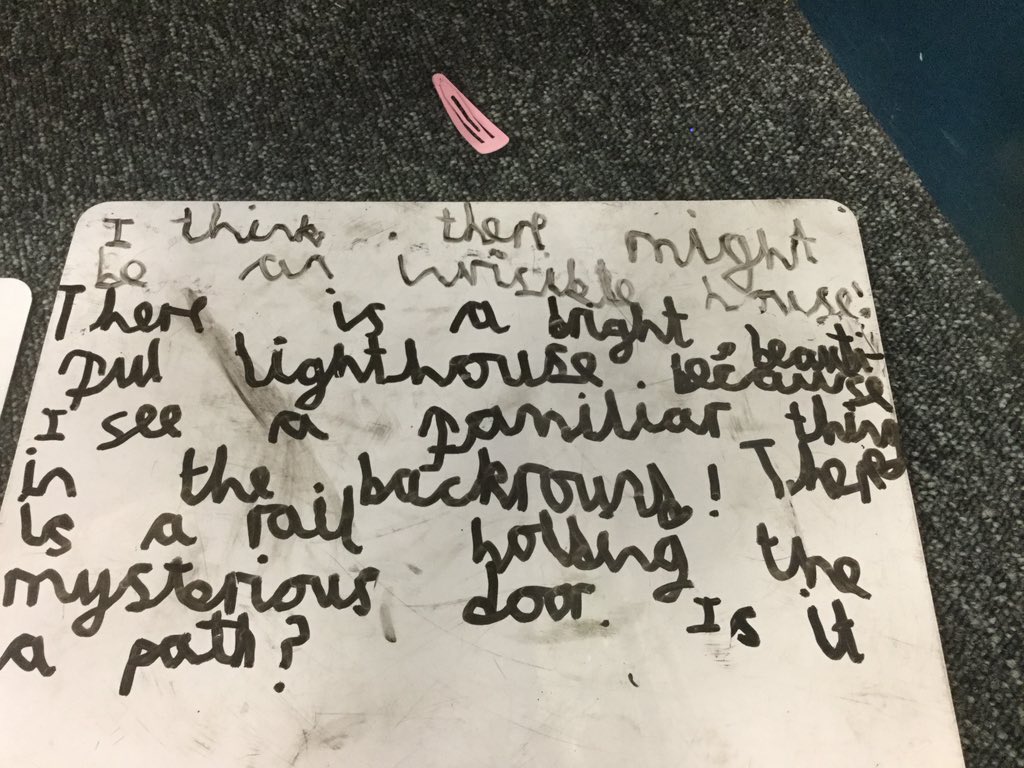 I think there might
be an invisible house!
There is a bright, beauti-
ful lighthouse because
I see a familiar thing
in the backround! There
is a rail holding the
mysterious door. Is it
a path?